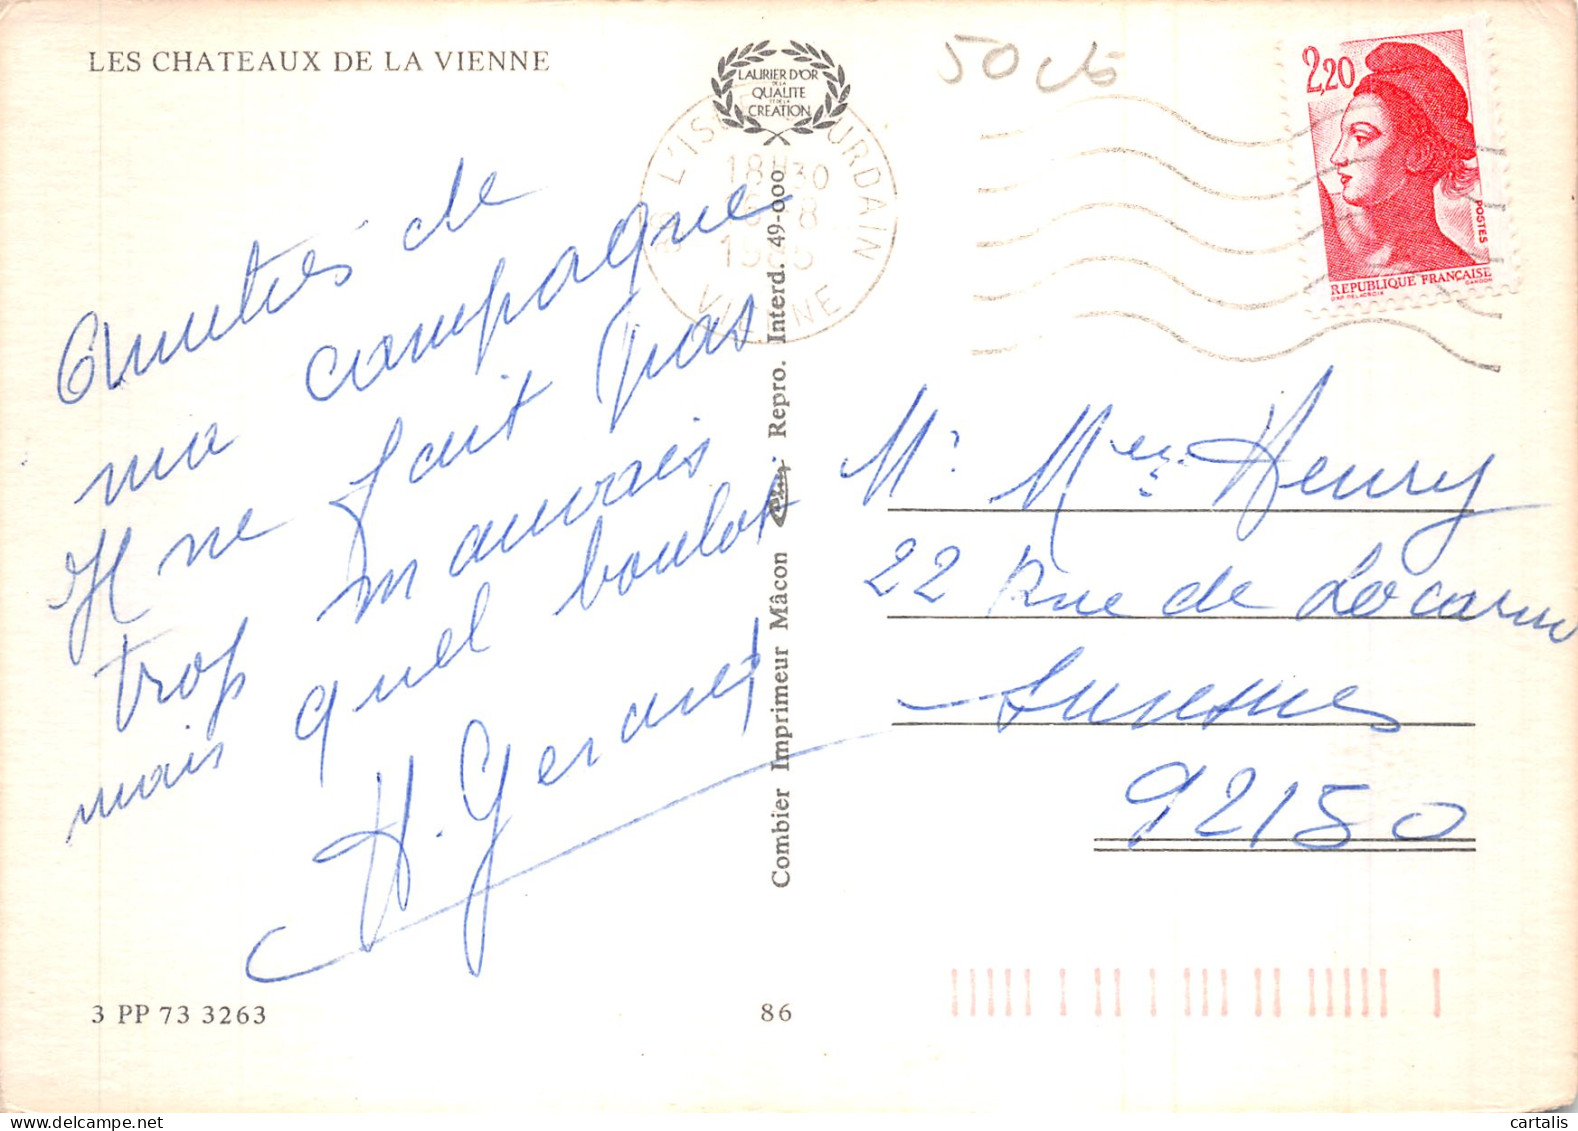 LES CHATEAUX DE LA VIENNE
LAURIER D'OR
DE LA
QUALITE
ET DE LA
CREATION
50 cts
2,20
POSTES
REPUBLIQUE FRANÇAISE
DAP. DELACROIX GANDON
L'IS URDAIN
18H30
6-8
VIENNE
Amitiés de
ma campagne
Il ne fait pas
trop mauvais
mais quel boulot
H. Gerard
Mr. Mme Henry
22 Rue de Locarno
Suresnes
92150
Combier Imprimeur Mâcon Repro. Interd. 49-000
3 PP 73 3263
86
cartalis